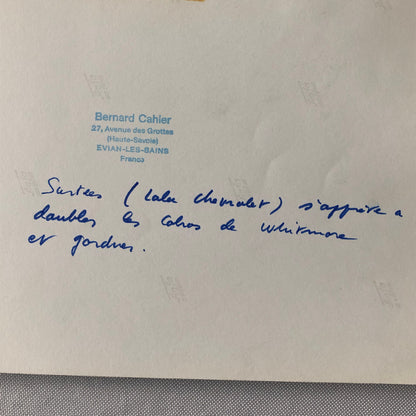 Bernard Cahier
27, Avenue des Grottes
(Haute-Savoie)
EVIAN-LES-BAINS
France
Surtees (Lola Chevrolet) s'apprête a
doubler les Cobras de Whitmore
et gardner.